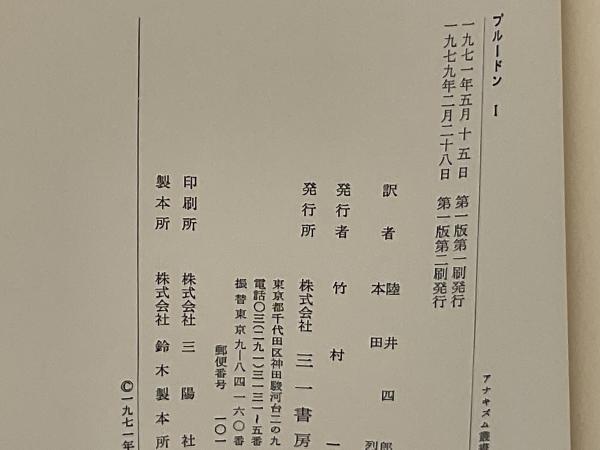 プルードン Ⅰ
アナキズム叢書
一九七一年五月十五日 第一版第一刷発行
一九七九年二月二十八日 第一版第二刷発行
訳者 陸井四郎
本田烈
発行者 竹村一
発行所 株式会社 三一書房
東京都千代田区神田駿河台二の九
電話〇三(二九一)三一三一~五番
振替東京九―八四一六〇番
郵便番号 一〇一
印刷所 株式会社 三陽社
製本所 株式会社 鈴木製本所
©一九七一年